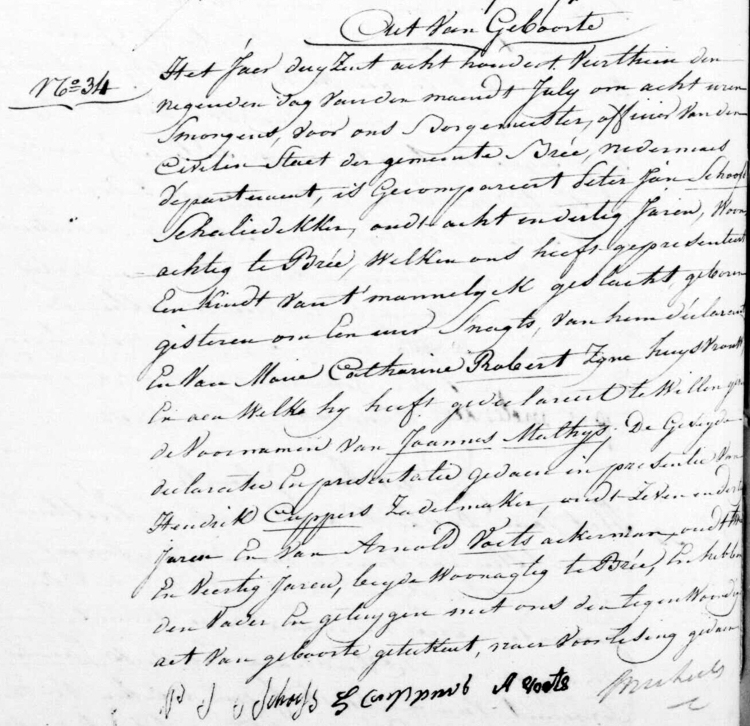 Act Van Geboorte
No 34
Het Jaer duyzent acht hondert Veerthien den
negenden dag Van den maendt July om acht uren
Smorgens, Voor ons Borgemeester, officier Van den
Civilen Staet der gemeente Brée, nedermaes
departement, is Gecompareert Peter Jan Schoofs
Schaliedekker, oudt acht en dertig Jaren, Woon
achtig te Brée, Welken ons heeft gepresenteert
Een Kindt Van t'mannelyck geslacht, geboren
gisteren om Een uer Snagts, Van hem declarant
En Van Marie Catharine Robert Zyne huysvrouw
En aen Welke hy heeft gedeclareert te Willen
de Voornamen Van Joannes Mathys. De Geseyde
declaratie En presentatie gedaen in presentie Van
Hendrik Cuppers Zadelmaker, oudt Zeven en dertig
Jaren En Van Arnold Voets ackerman, oudt
En Veertig Jaren, beyde Woonagtig te Brée, En hebben
den Vader En getuygen met ons den tegenwoordigen
act Van geboorte geteekent, naer Voorlesing gedaen
P J Schoofs H Cuppers A Voets